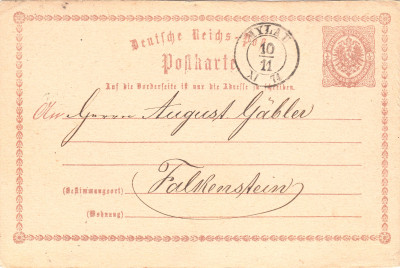 Deutsche Reichs-
Postkarte
MYLAU
10
11
Auf die Vorderseite ist nur die Adresse zu schreiben.
An Herrn August Gabler
Falkenstein
(Bestimmungsort)
(Wohnung)